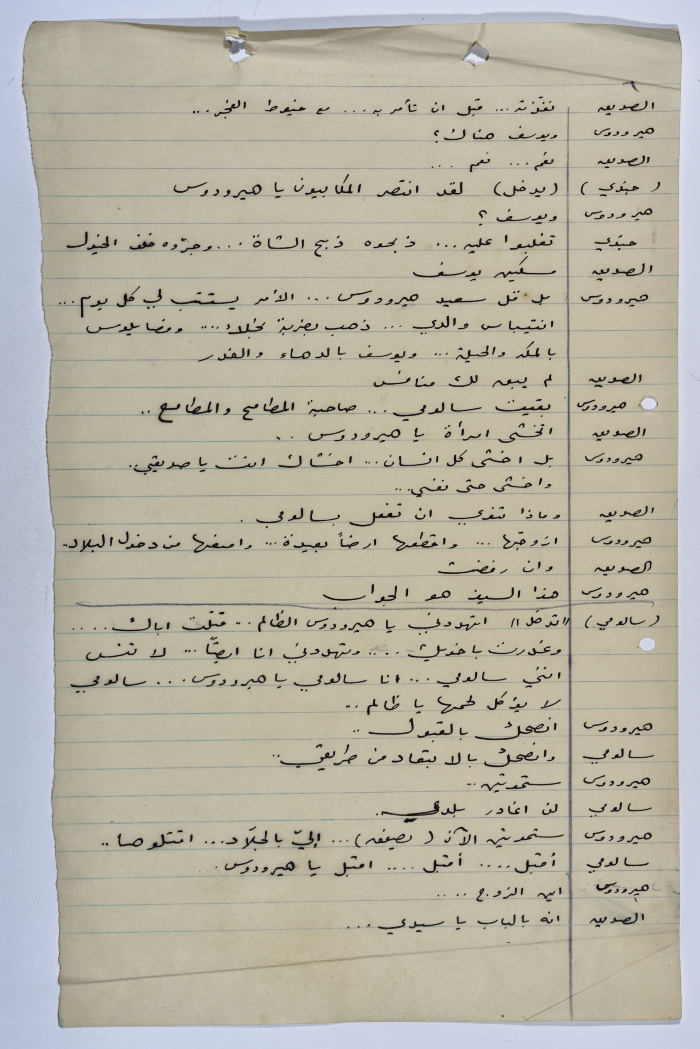 ٦
الصديق نفّذته... قبل ان تأمر به... مع خيوط الفجر...
هيرودوس ويوسف هناك؟
الصديق نعم... نعم ...
(جندي) (يدخل) لقد انتصر المكابيون يا هيرودوس
هيرودوس ويوسف؟
جندي تغلبوا عليه... ذبحوه ذبح الشاة... وجرّوه خلف الخيول
الصديق مسكين يوسف
هيرودوس بل قل سعيد هيرودوس... الأمر يستتب لي كل يوم...
انتيباس والدي... ذهب بضربة نجلاء... وفصايلوس
بالمكر والحيلة... ويوسف بالدهاء والغدر
الصديق لم يبق لك منافس
هيرودوس بقيت سالومي... صاحبة المطامح والمطامع..
الصديق اتخشى امرأة يا هيرودوس..
هيرودوس بل اخشى كل انسان... اخشاك انت يا صديقي.
واخشى حتى نفسي...
الصديق وماذا تنوي ان تفعل بسالومي.
هيرودوس ازوجها... واقطعها ارضاً بعيدة... وامنعها من دخول البلاد..
الصديق وان رفضت
هيرودوس هذا السيف هو الجواب
(سالومي) "تدخل" اتهددني يا هيرودوس الظالم... قتلت اباك.....
وغدرت باخويك.... وتهددني انا ايضاً... لا تنس
انني سالومي... انا سالومي يا هيرودوس... سالومي
لا يؤكل لحمها يا ظالم...
هيرودوس انصحك بالقبول..
سالومي وانصحك بالابتعاد من طريقي..
هيرودوس ستموتين...
سالومي لن اغادر بلدي.
هيرودوس ستموتين الآن (يصفق)... إليّ بالجلّاد... اقتلوها..
سالومي أقبل.... أقبل.... اقبل يا هيرودوس.
هيرودوس اين الزوج....
الصديق انه بالباب يا سيدي...